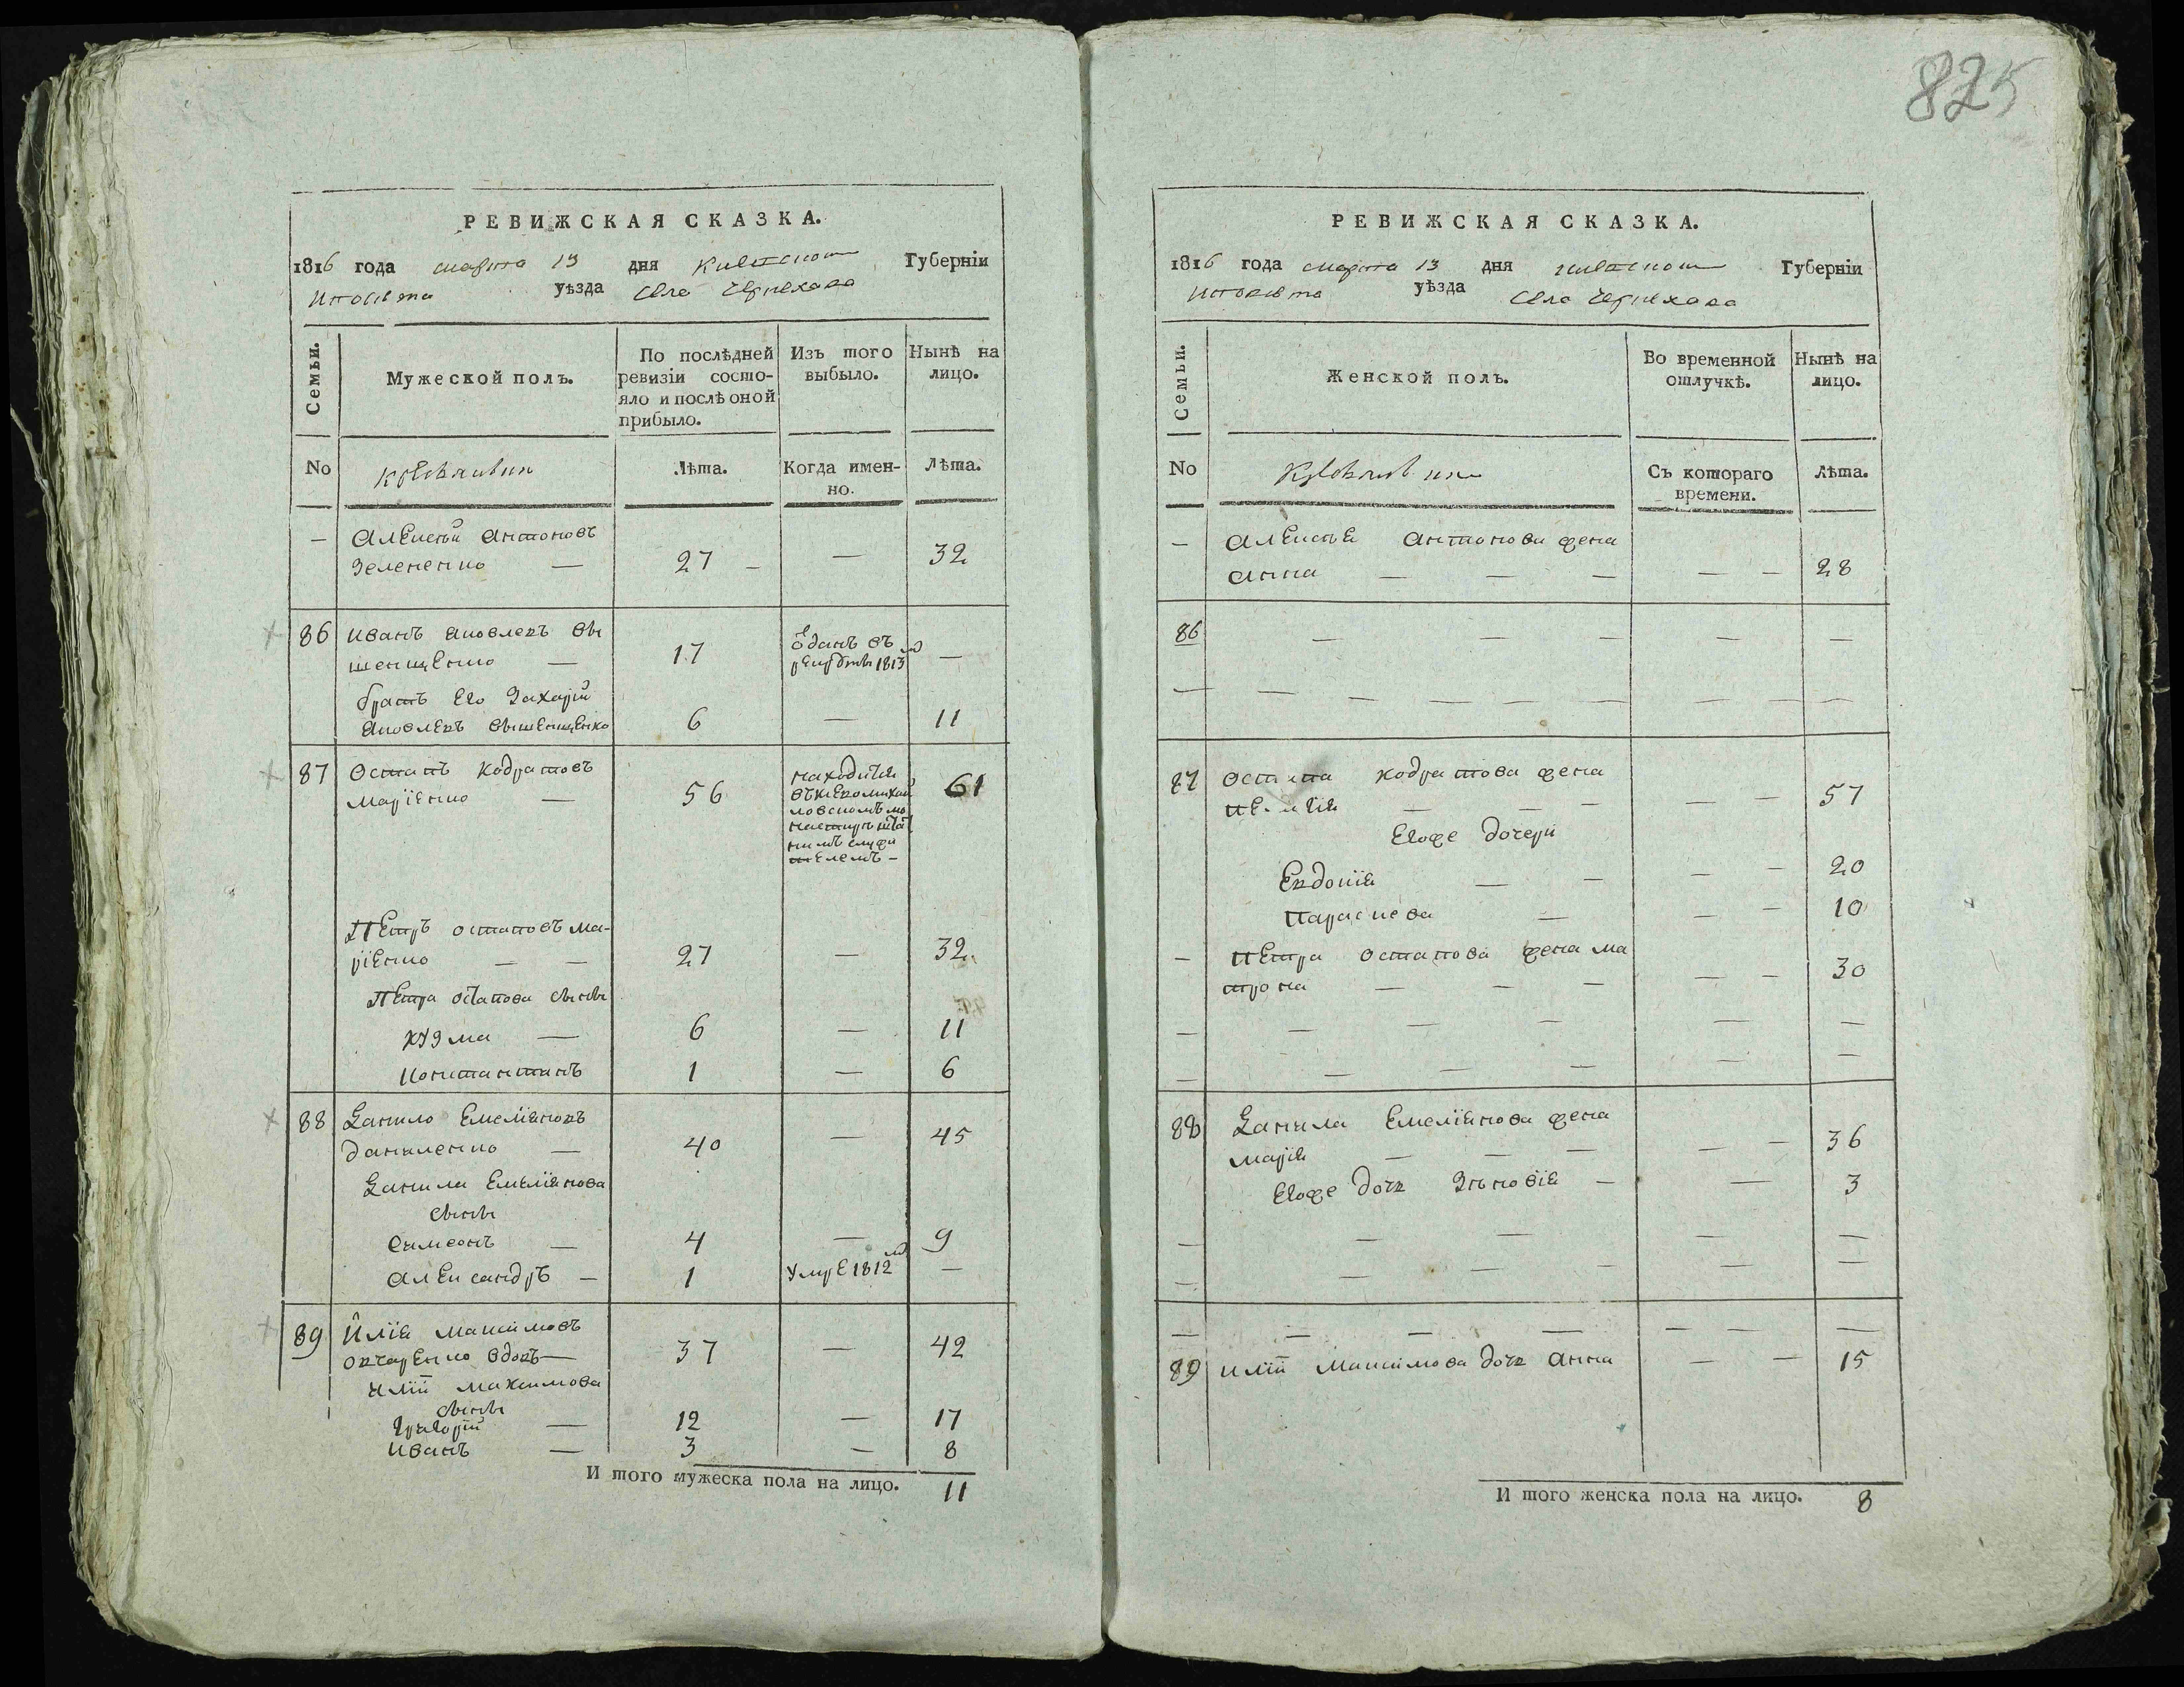 825
РЕВИЖСКАЯ СКАЗКА.
1816 года марта 13 дня Киевской Губерніи
уѣзда Села Чернехова
Семьи.
Мужеской полъ.
По послѣдней ревизіи состо-
яло и послѣ оной прибыло.
Изъ того выбыло.
Нынѣ на лицо.
No
Лѣта.
Когда имен-
но.
Лѣта.
— Алексѣй Антоновъ
Зелененко — 27 — — 32
86 Иванъ Яковлевъ Вы
шенщенко — 17 ѿданъ въ рекруты 1813го —
братъ Его Захарій
Яковлевъ Вышенщенко 6 — 11
87 Остапъ Кодратовъ
Маріенко — 56 61
находится
въ Кіевомихай
ловскомъ мо
настирѣ штат
нимъ служи
телемъ —
Петръ Остаповъ Ма-
ріенко — — 27 — 32
Петра Остапова сыны
Кузма — 6 — 11
Константинъ 1 — 6
88 Данило Емеліяновъ
Даниленко — 40 — 45
Данила Емеліянова
сыны
Симеонъ — 4 — 9
Александръ — 1 Умре 1812го —
89 Илія Максимовъ
Овчаренко вдовъ — 37 — 42
Иліи Максимова
сыны
Григорій — 12 — 17
Иванъ — 3 — 8
И того мужеска пола на лицо. 11
РЕВИЖСКАЯ СКАЗКА.
1816 года марта 13 дня Киевской Губерніи
уѣзда Села Чернехова
Семьи.
Женской полъ.
Во временной отлучкѣ.
Нынѣ на лицо.
No
Съ котораго времени.
Лѣта.
— Алексѣя Антонова жена
Анна — — — — — 28
86 — — — — —
— — — — — — — — — —
87 Остапа Кодратова жена
— — — — — 57
Егоже дочери
Евдокія — — — — 20
Параскева — — — 10
— Петра Остапова жена Ма
трона — — — — — 30
— — — — — —
— — — — — —
88 Данила Емеліянова жена
Марія — — — — — 36
Егоже дочь Зѣновія — — 3
— — — — —
— — — — —
— — — — — — —
89 Иліи Максимова дочь Анна — — 15
И того женска пола на лицо. 8